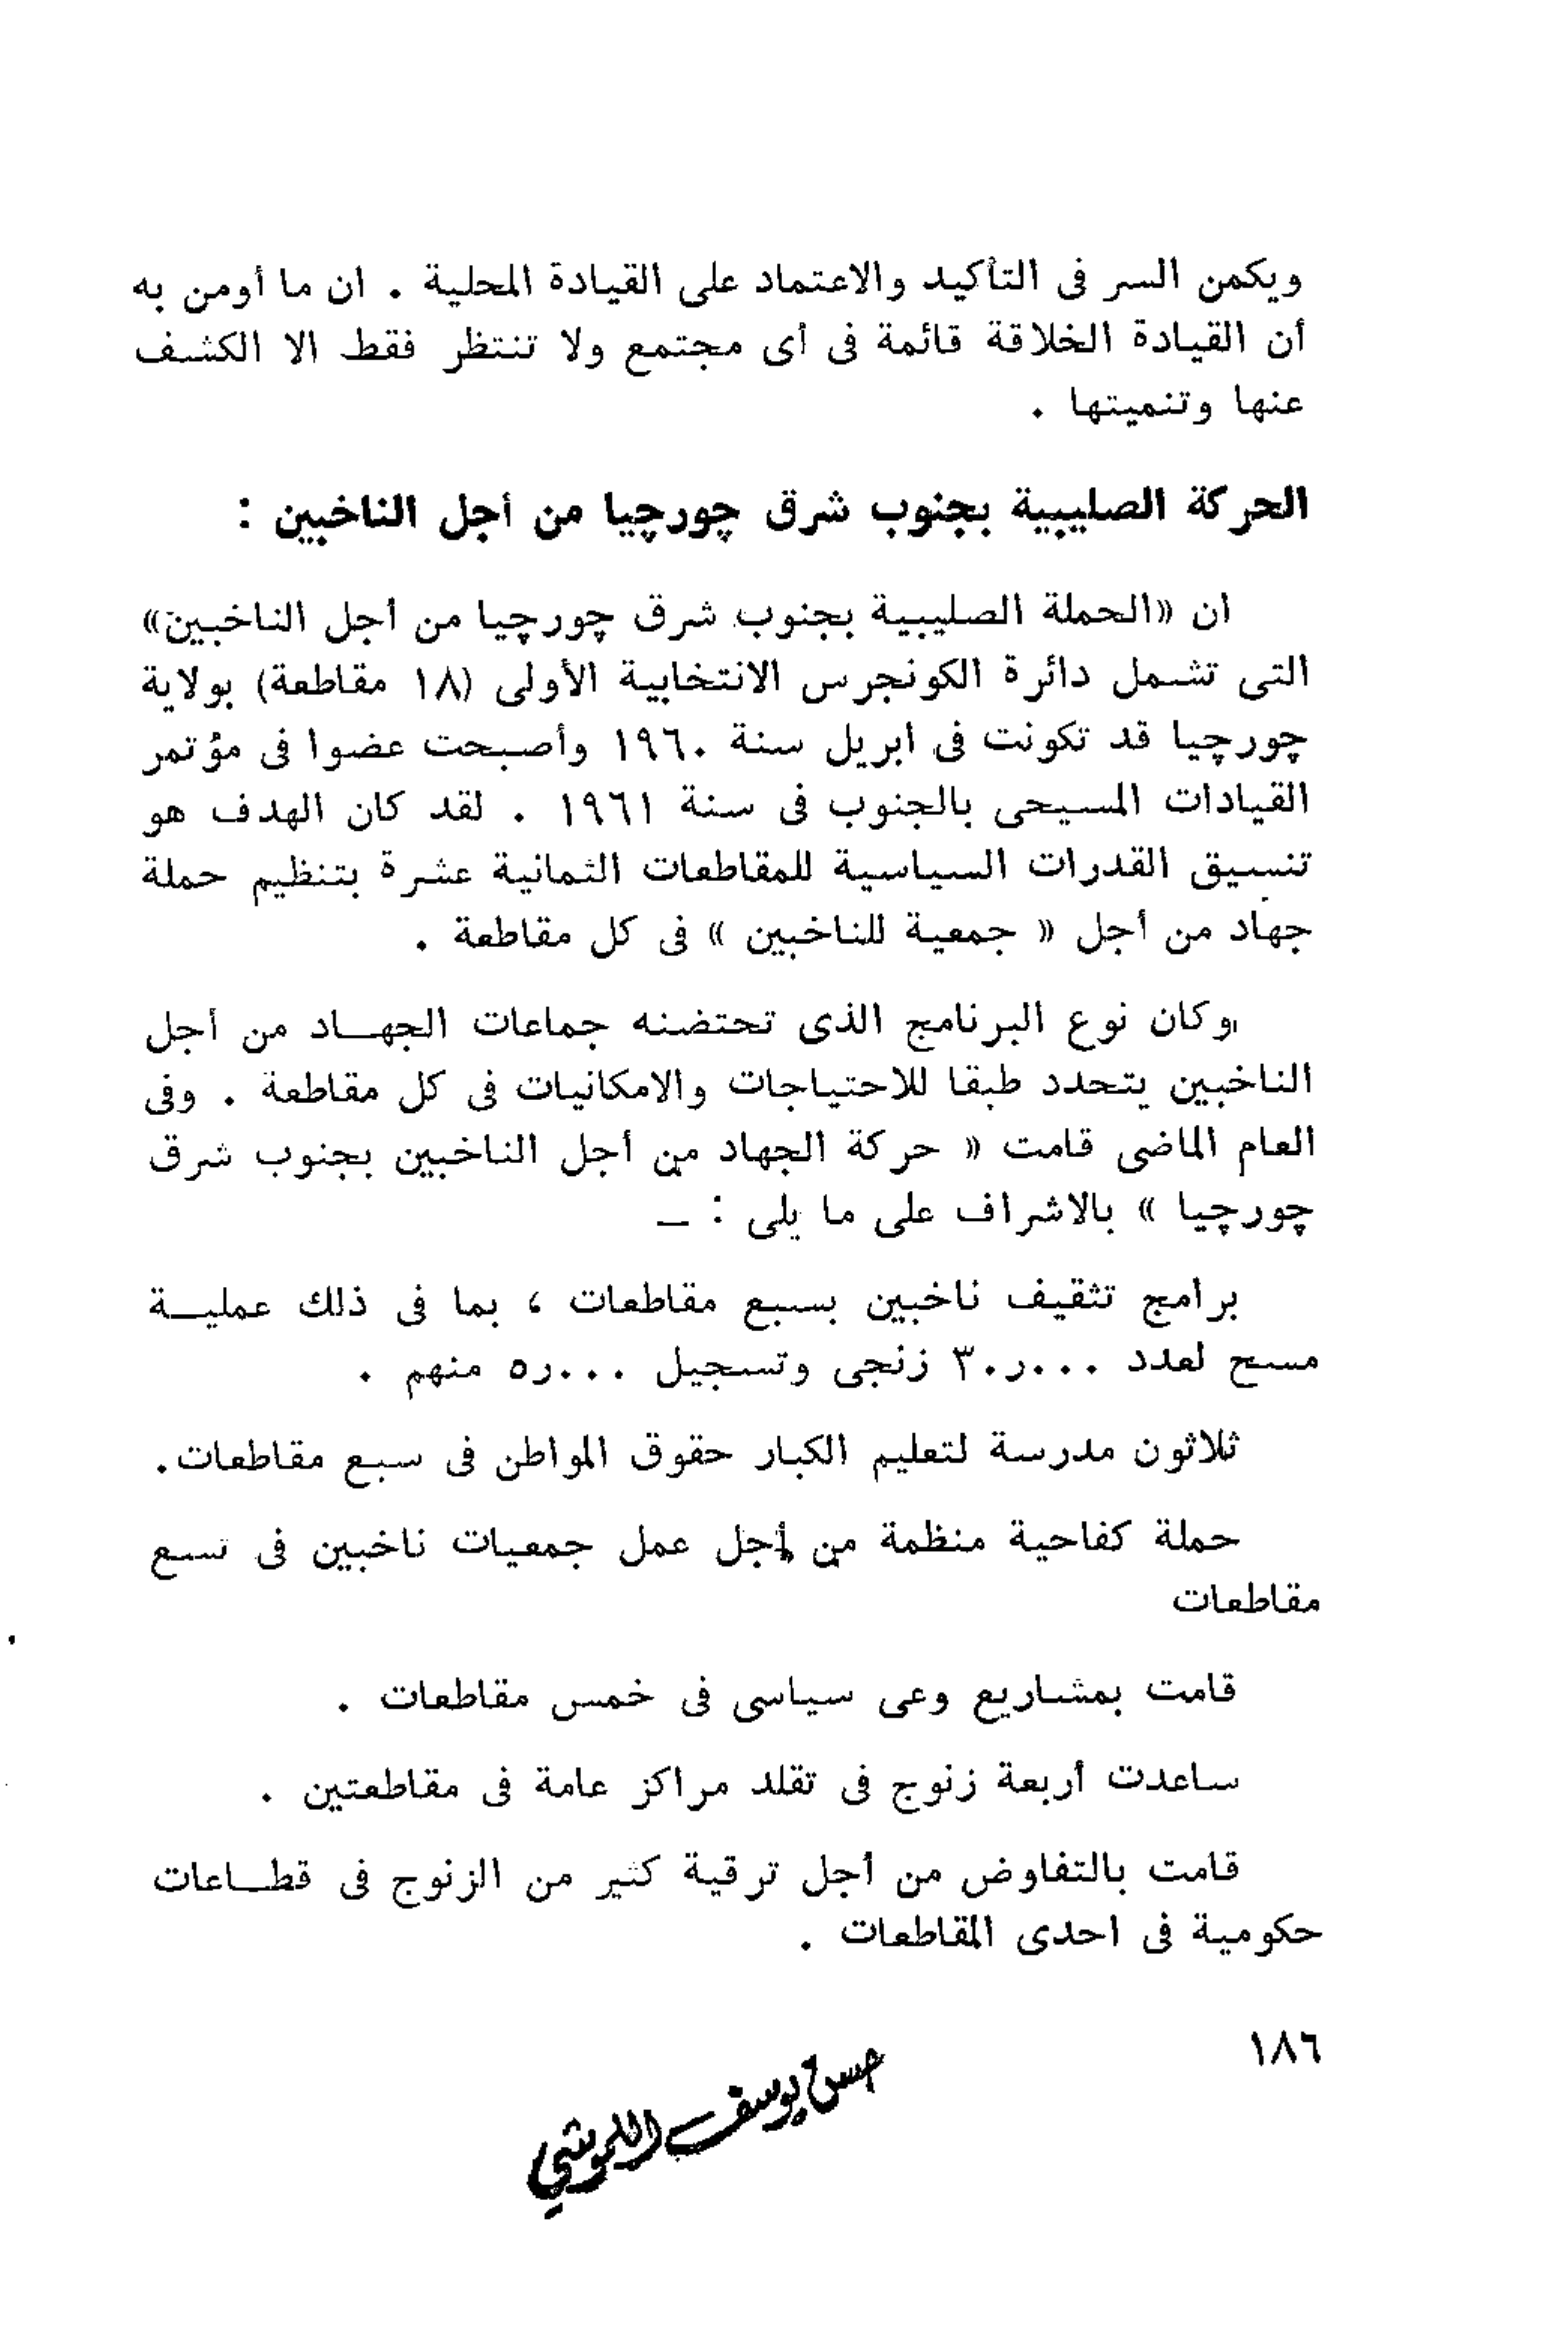 ويكمن السر فى التأكيد والاعتماد على القيادة المحلية . ان ما أومن به
أن القيادة الخلاقة قائمة فى أى مجتمع ولا تنتظر فقط الا الكشف
عنها وتنميتها .
الحركة الصليبية بجنوب شرق چورچيا من أجل الناخبين :
ان «الحملة الصليبية بجنوب شرق چورچيا من أجل الناخبين»
التى تشمل دائرة الكونجرس الانتخابية الأولى (١٨ مقاطعة) بولاية
چورچيا قد تكونت فى ابريل سنة ١٩٦٠ وأصبحت عضوا فى مؤتمر
القيادات المسيحى بالجنوب فى سنة ١٩٦١ . لقد كان الهدف هو
تنسيق القدرات السياسية للمقاطعات الثمانية عشرة بتنظيم حملة
جهاد من أجل « جمعية للناخبين » فى كل مقاطعة .
وكان نوع البرنامج الذى تحتضنه جماعات الجهاد من أجل
الناخبين يتحدد طبقا للاحتياجات والامكانيات فى كل مقاطعة . وفى
العام الماضى قامت « حركة الجهاد من أجل الناخبين بجنوب شرق
چورچيا » بالاشراف على ما يلى : ــ
برامج تثقيف ناخبين بسبع مقاطعات ، بما فى ذلك عملية
مسح لعدد ٣٠ر٠٠٠ زنجى وتسجيل ٥ر٠٠٠ منهم .
ثلاثون مدرسة لتعليم الكبار حقوق المواطن فى سبع مقاطعات.
حملة كفاحية منظمة من أجل عمل جمعيات ناخبين فى تسع
مقاطعات
قامت بمشاريع وعى سياسى فى خمس مقاطعات .
ساعدت أربعة زنوج فى تقلد مراكز عامة فى مقاطعتين .
قامت بالتفاوض من أجل ترقية كثير من الزنوج فى قطاعات
حكومية فى احدى المقاطعات .
١٨٦
حسن يوسف